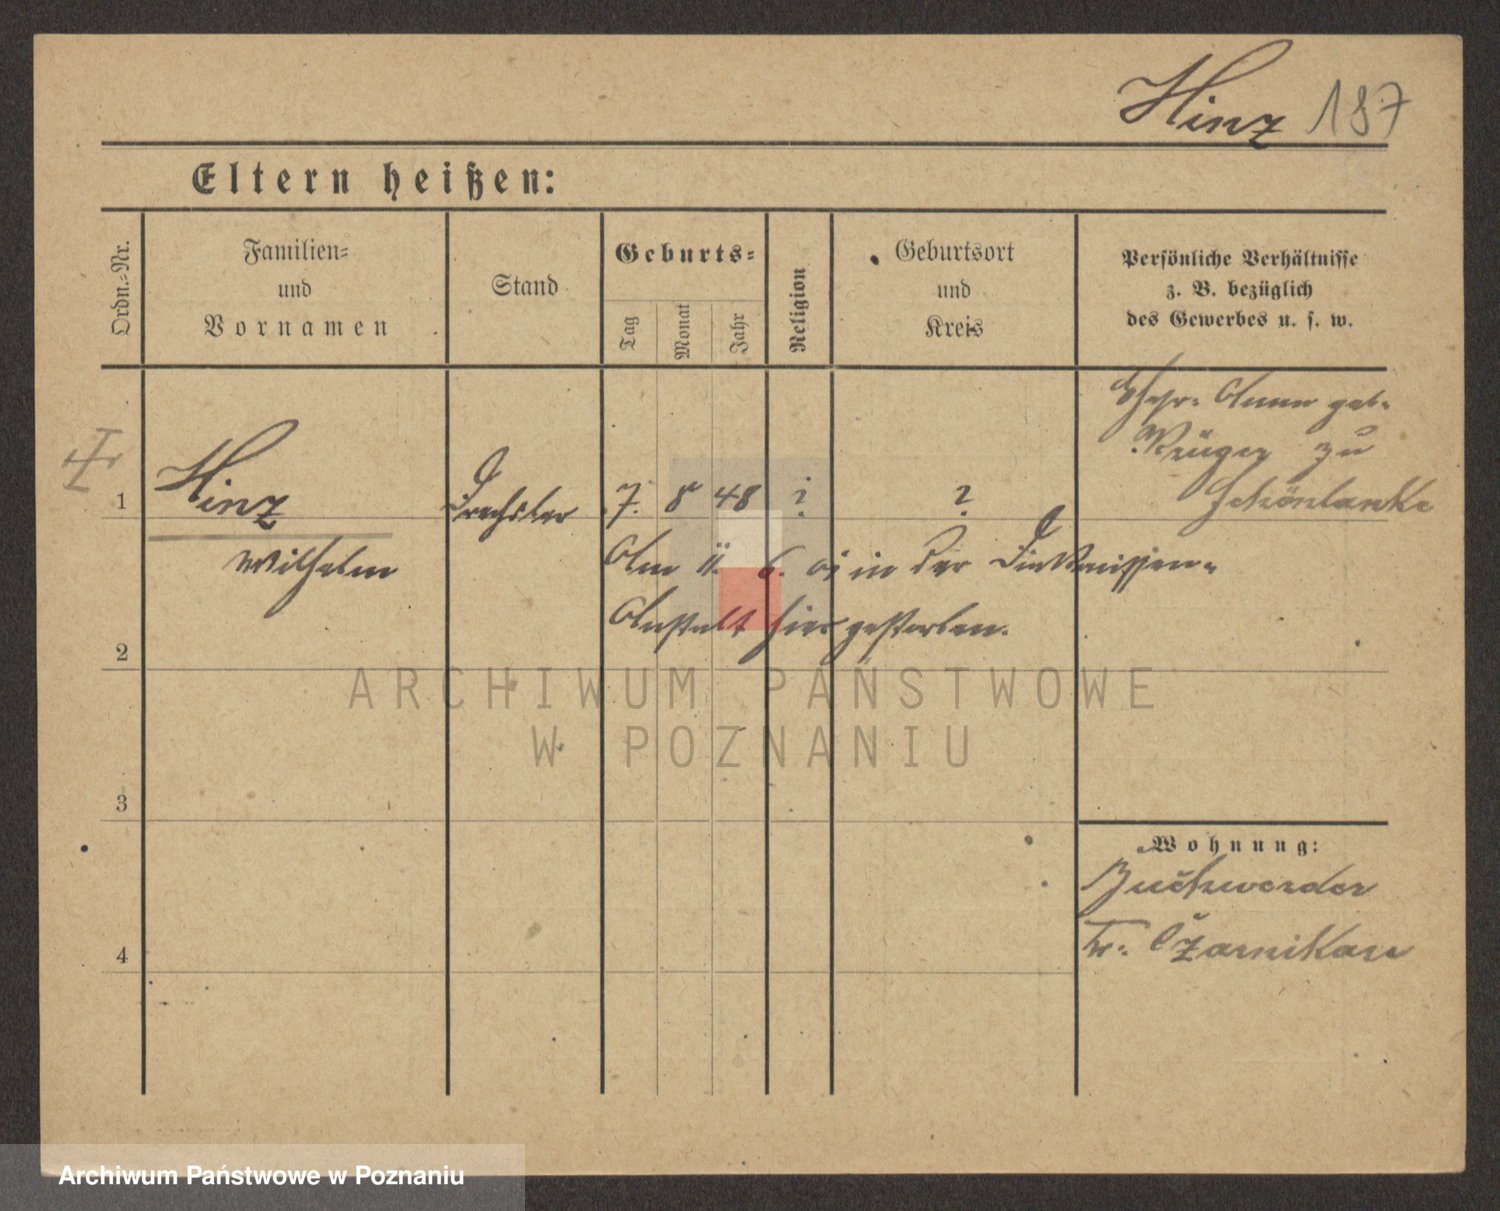 Hinz 187
Eltern heißen:
Ordn.-Nr.
Familien-
und
Vornamen
Stand
Geburts-
Tag
Monat
Jahr
Religion
Geburtsort
und
Kreis
Persönliche Verhältnisse
z. B. bezüglich
des Gewerbes u. s. w.
Ehefr. Anna geb.
Krüger zu
Schönlanke
1 Hinz Drechsler 7. 8 48 ? ?
Wilhelm
Am 11. 6. in der Diakonissen-
Anstalt hier gestorben.
2
ARCHIWUM PAŃSTWOWE
W POZNANIU
3
Wohnung:
Buchwerder
Kr. Czarnikau
4
Archiwum Państwowe w Poznaniu